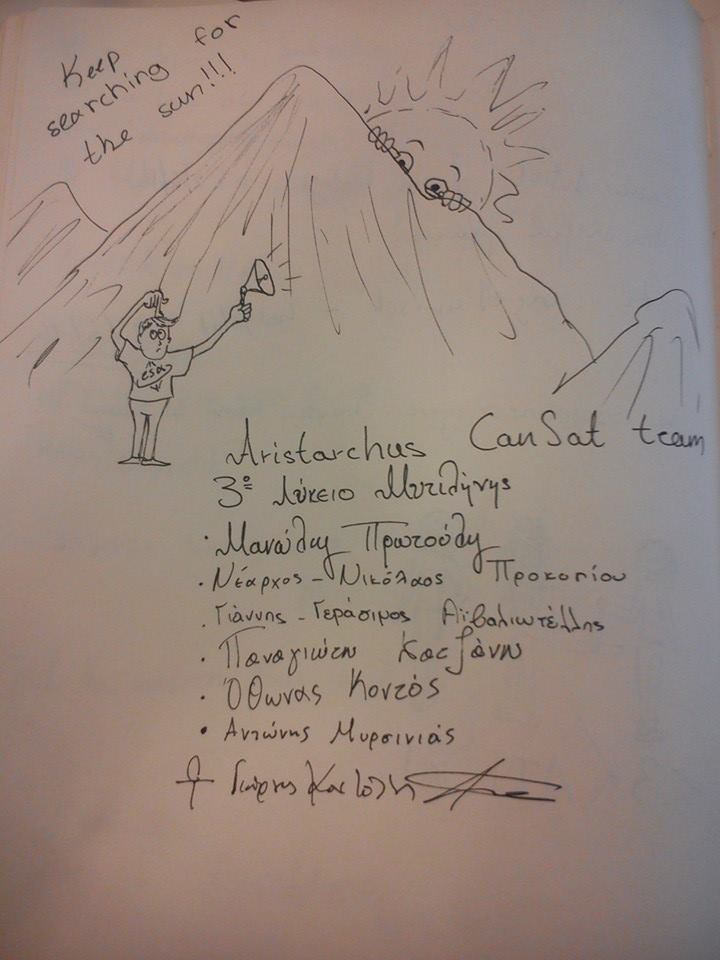 Keep
searching for
the sun!!!
esa
Aristarchus CanSat team
3º Λύκειο Μυτιλήνης
• Μανώλης Πρωτούλης
• Νέαρχος - Νικόλαος Προκοπίου
• Γιάννης - Γεράσιμος Αϊβαλιωτέλλης
• Παναγιώτη Κατζάνη
• Όθωνας Κοντός
• Αντώνης Μυρσινιάς
Γιώργης